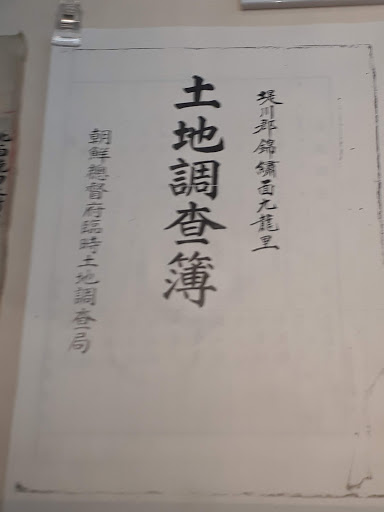 堤川郡錦繡面九龍里
土地調査簿
朝鮮總督府臨時土地調査局